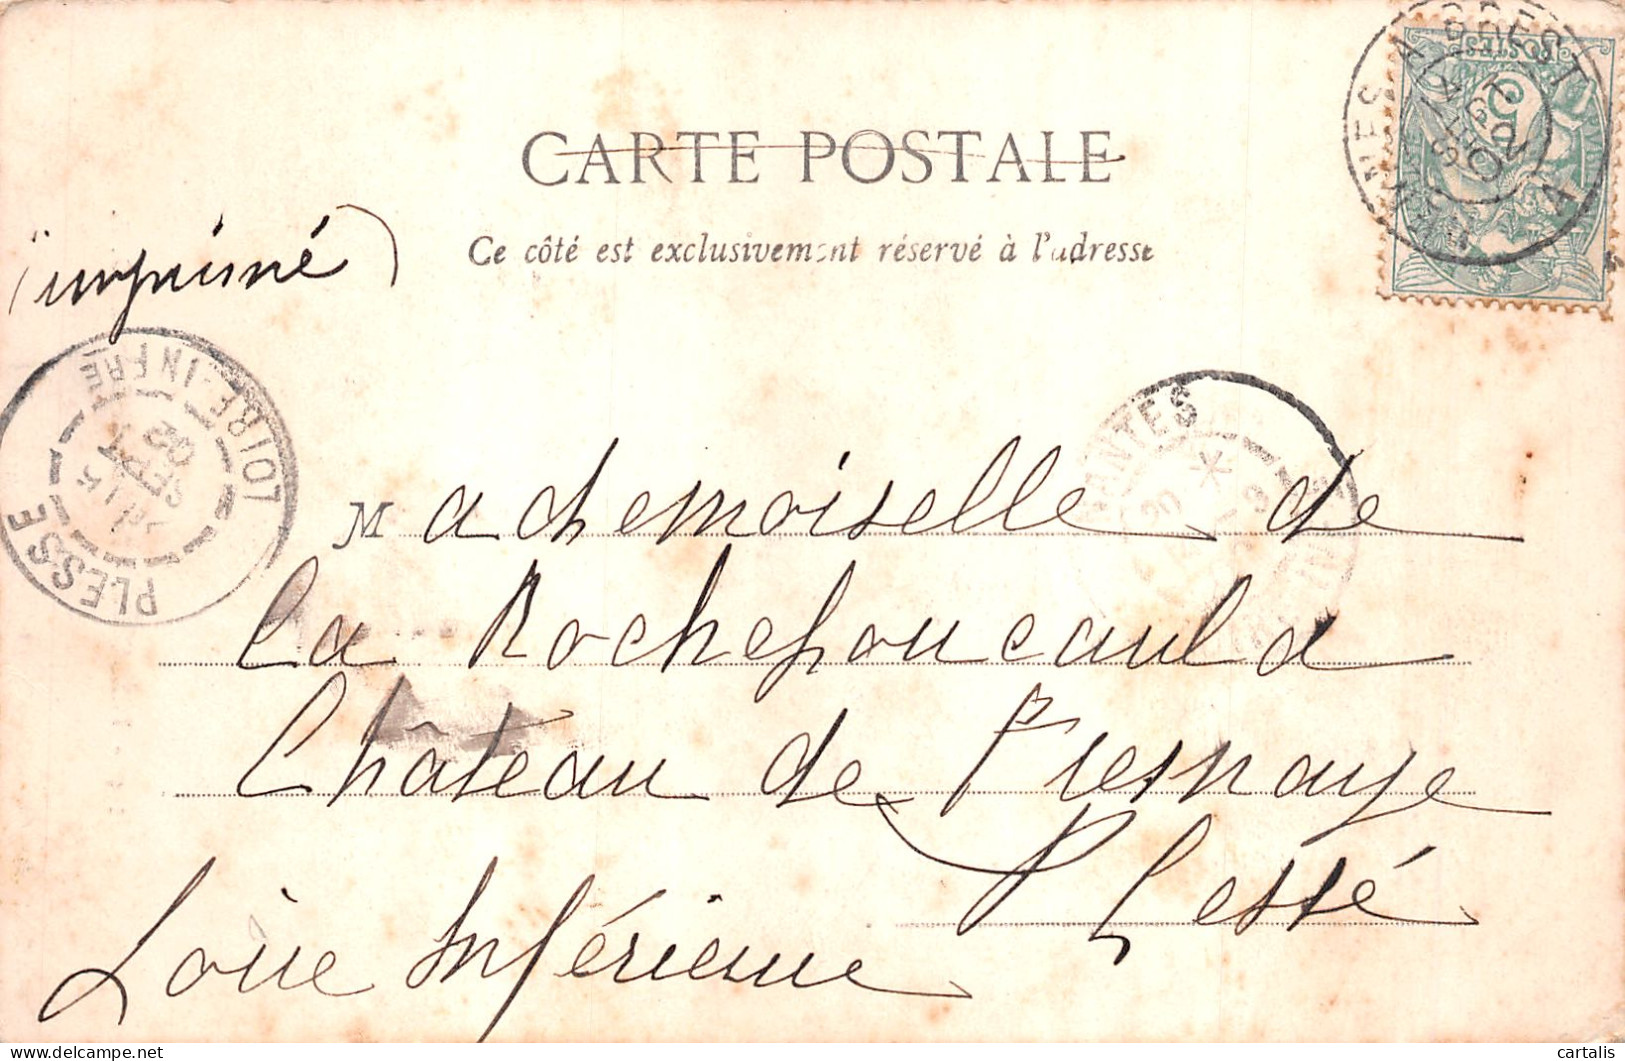 CARTE POSTALE
Ce côté est exclusivement réservé à l'adresse
(imprimé)
5
POSTES
A BREST
14
SEPT
02
A
LOIRE-INFRE
PLESSE
NANTES
Mademoiselle de
La Rochefoucauld
Château de Fresnaye
Plessé
Loire Inférieure
cartalis